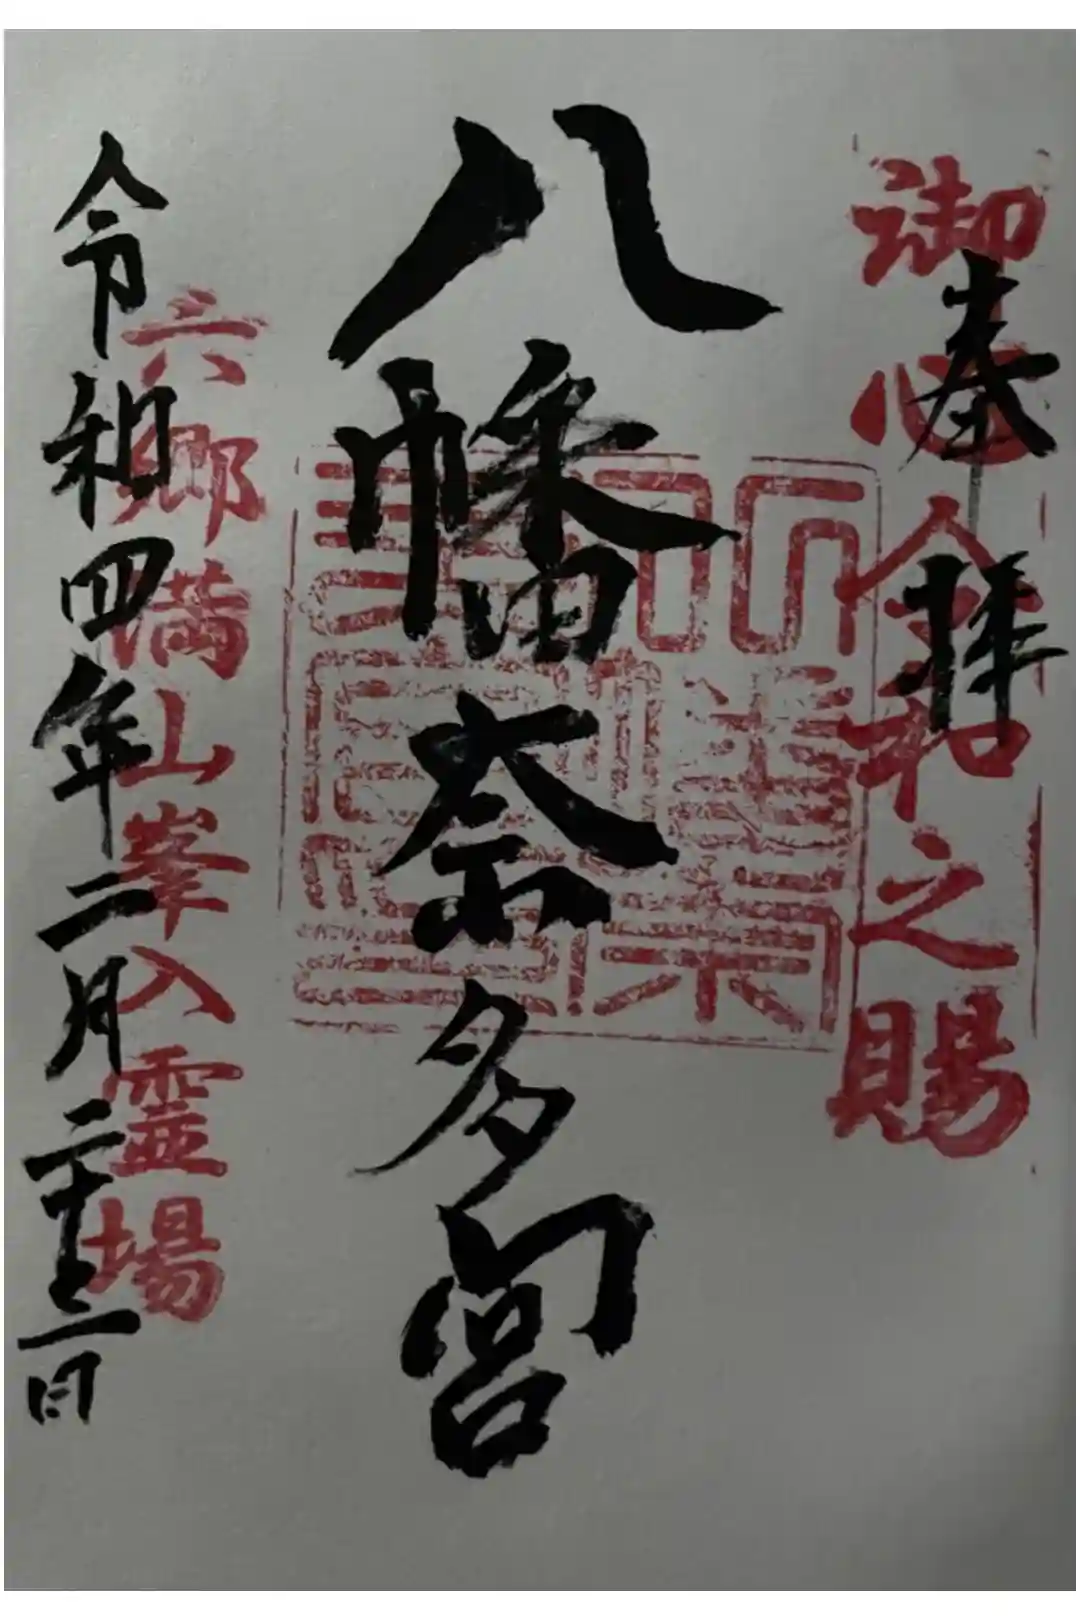 御心令和之賜
奉拝
八幡奈多宮
六郷満山峯入霊場
令和四年二月二十三日